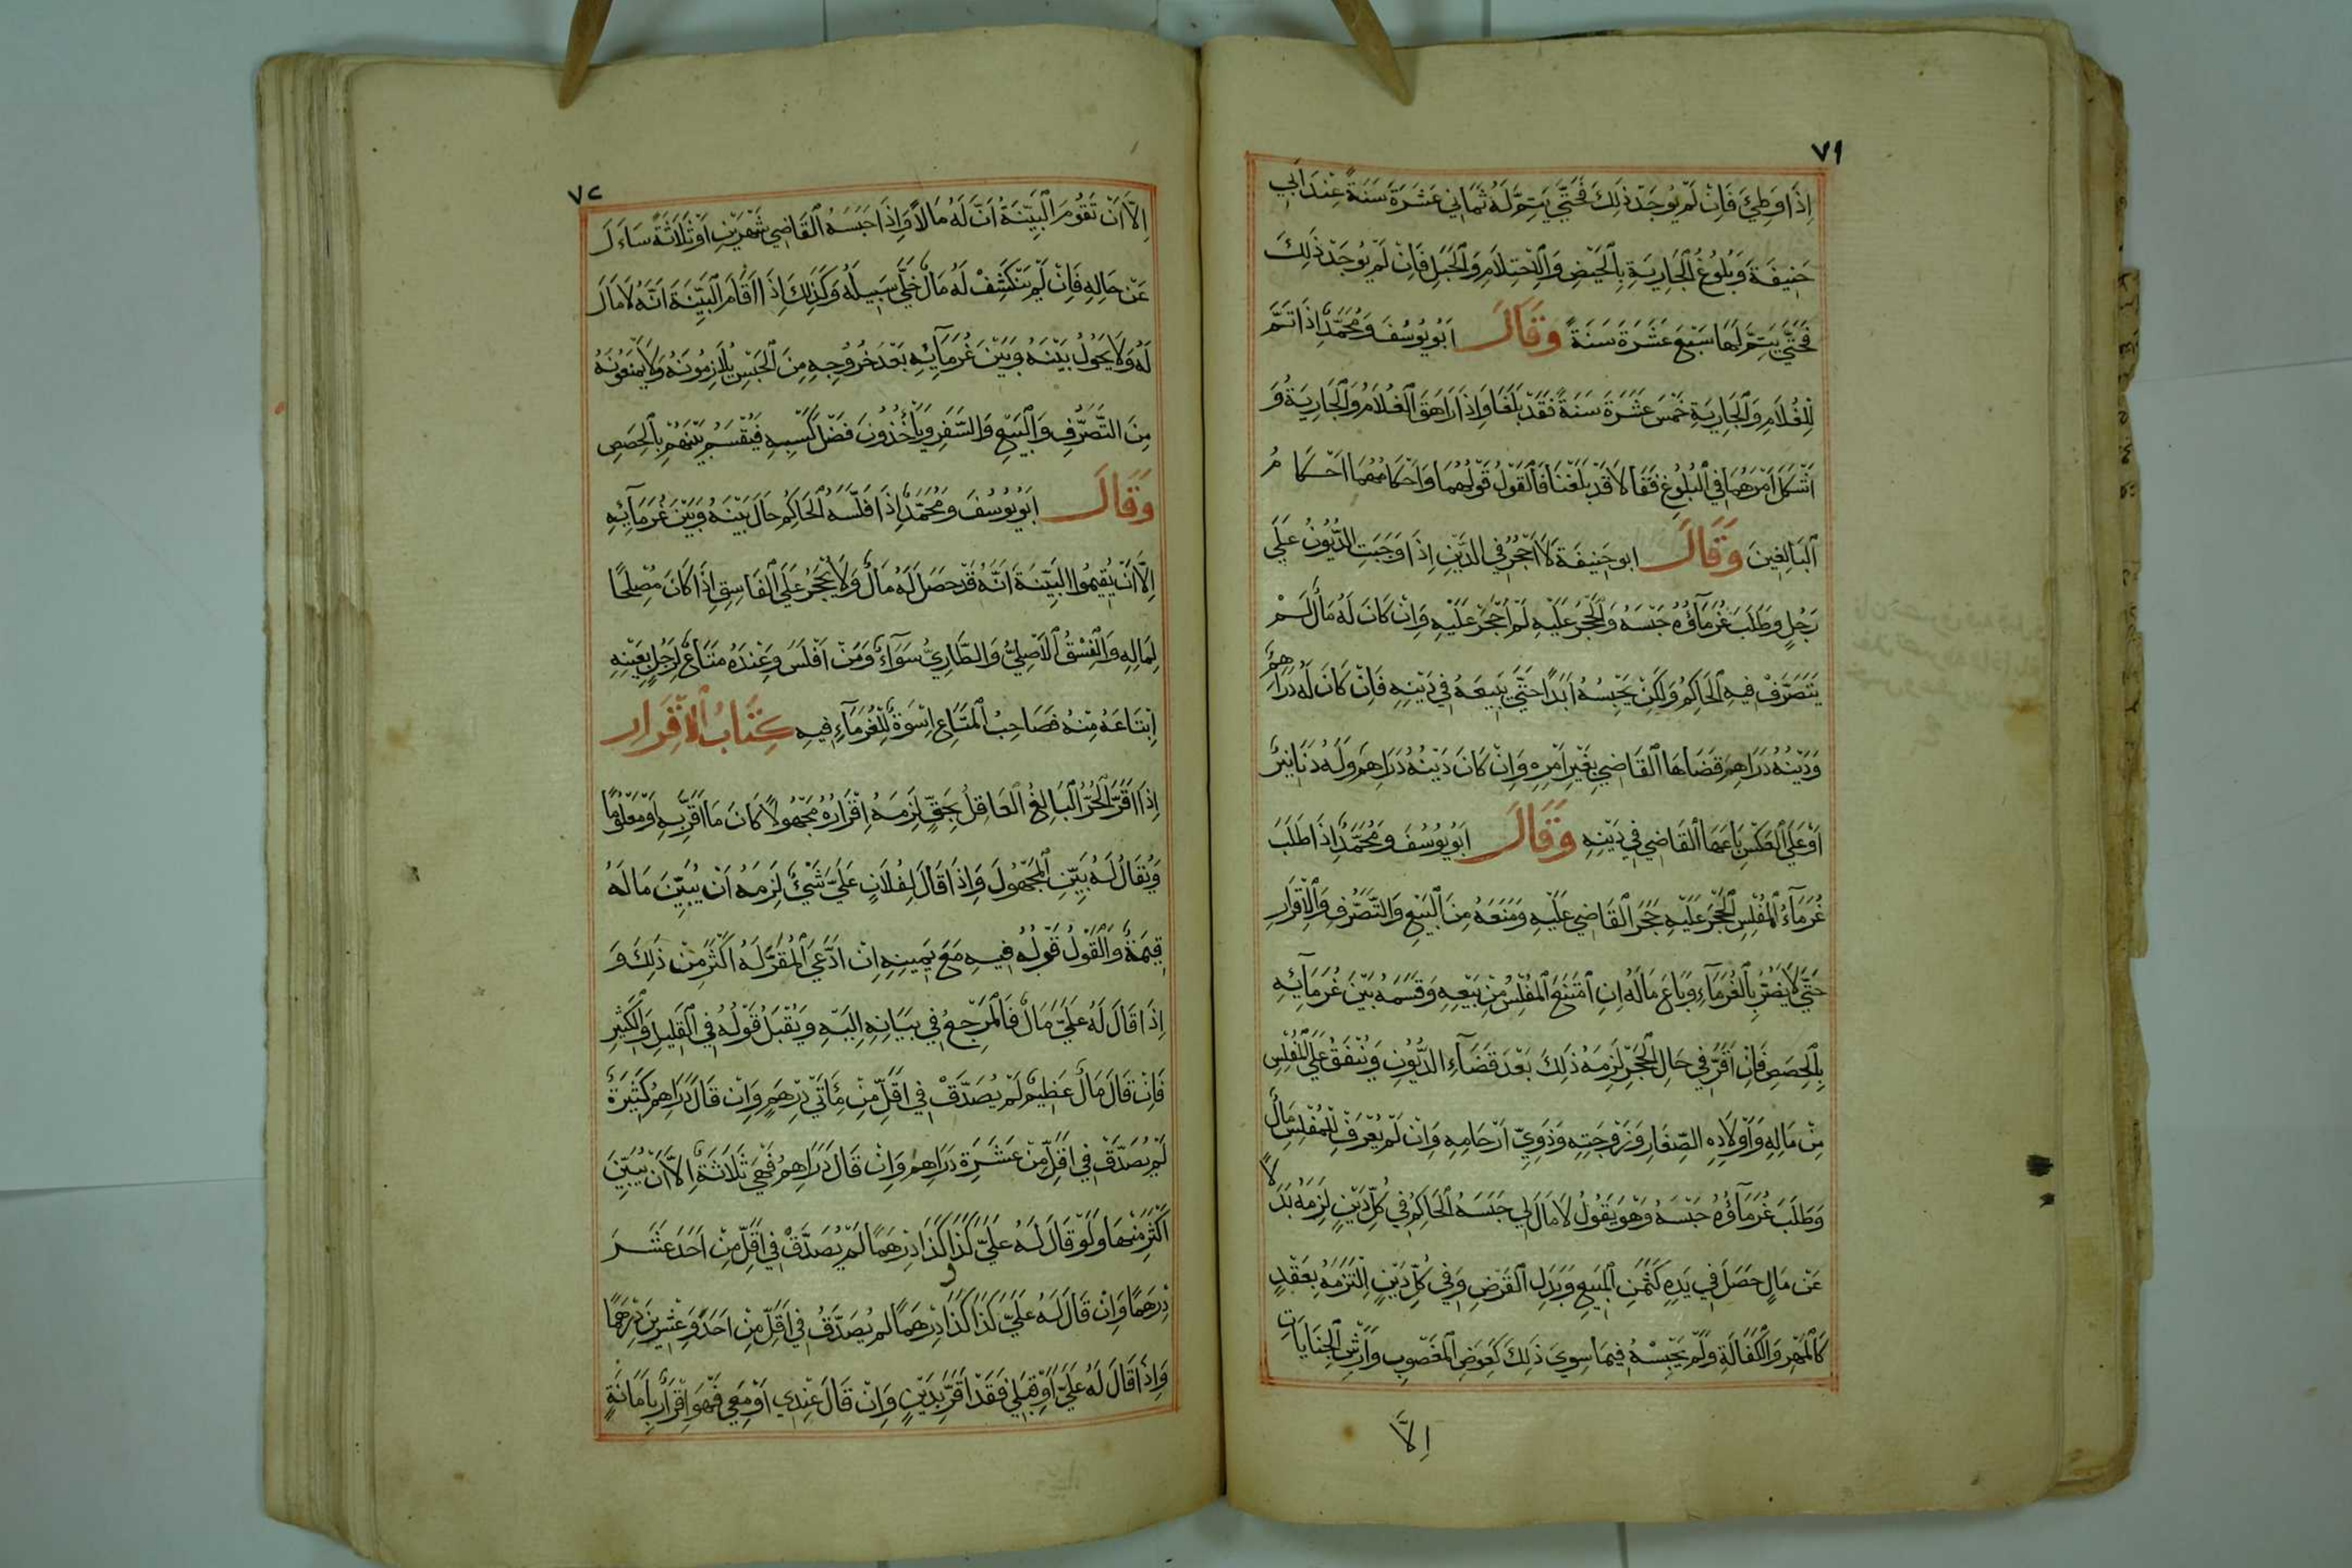 ٧١
اِذَا وَطِئَ فَاِنْ لَمْ يُوجَدْ ذٰلِكَ فَحَتّٰي يَتِمَّ لَهُ ثَمَانِي عَشَرَةَ سَنَةً عِنْدَ اَبِي
حَنِيفَةَ وَبُلُوغُ الْجَارِيَةِ بِالْحَيْضِ وَالْاِحْتِلَامِ وَالْحَبَلِ فَاِنْ لَمْ يُوجَدْ ذٰلِكَ
فَحَتّٰي يَتِمَّ لَهَا سَبْعَ عَشَرَةَ سَنَةً وَقَالَ اَبُو يُوسُفَ وَمُحَمَّدٌ اِذَا تَمَّ
لِلْغُلَامِ وَالْجَارِيَةِ خَمْسَ عَشَرَةَ سَنَةً فَقَدْ بَلَغَا وَاِذَا رَاهَقَ الْغُلَامُ وَالْجَارِيَةُ وَ
اَشْكَلَ اَمْرُهُمَا فِي الْبُلُوغِ فَقَالَا قَدْ بَلَغْنَا فَالْقَوْلُ قَوْلُهُمَا وَاَحْكَامُهُمَا اَحْكَامُ
الْبَالِغِينَ وَقَالَ ابو حَنِيفَةَ لَا اَحْجُرُ فِي الدَّيْنِ اِذَا وَجَبَتِ الدُّيُونُ عَلَي
رَجُلٍ وَطَلَبَ غُرَمَآؤُهُ حَبْسَهُ وَالْحَجْرَ عَلَيْهِ لَمْ اَحْجُرْ عَلَيْهِ وَاِنْ كَانَ لَهُ مَالٌ لَمْ
يَتَصَرَّفْ فِيهِ الْحَاكِمُ وَلٰكِنْ يَحْبِسُهُ اَبَدًا حَتّٰي يَبِيعَهُ فِي دَيْنِهِ فَاِنْ كَانَ لَهُ دَرَاهِمُ
وَدَيْنُهُ دَرَاهِمَ قَضَاهَا الْقَاضِي بِغَيْرِ اَمْرِهِ وَاِنْ كَانَ دَيْنُهُ دَرَاهِمَ وَلَهُ دَنَانِيرُ
اَوْ عَلَي الْعَكْسِ بَاعَهَا الْقَاضِي فِي دَيْنِهِ وَقَالَ اَبُو يُوسُفَ وَمُحَمَّدٌ اِذَا طَلَبَ
غُرَمَآءُ الْمُفْلِسِ الْحَجْرَ عَلَيْهِ حَجَرَ الْقَاضِي عَلَيْهِ وَمَنَعَهُ مِنَ الْبَيْعِ وَالتَّصَرُّفِ وَالْاِقْرَارِ
حَتّٰي لَا يَضُرَّ بِالْغُرَمَآءِ وَبَاعَ مَالَهُ اِنِ امْتَنَعَ الْمُفْلِسُ مِنْ بَيْعِهِ وَقَسَمَهُ بَيْنَ غُرَمَآئِهِ
بِالْحِصَصِ فَاِنْ اَقَرَّ فِي حَالِ الْحَجْرِ لَزِمَهُ ذٰلِكَ بَعْدَ قَضَآءِ الدُّيُونِ وَيُنْفَقُ عَلَي الْمُفْلِسِ
مِنْ مَالِهِ وَاَوْلَادِهِ الصِّغَارِ وَزَوْجَتِهِ وَذَوِيّ اَرْحَامِهِ وَاِنْ لَمْ يُعْرَفْ لِلْمُفْلِسِ مَالٌ
وَطَلَبَ غُرَمَآؤُهُ حَبْسَهُ وَهُوَ يَقُولُ لَا مَالَ لِي حَبَسَهُ الْحَاكِمُ فِي كُلِّ دَيْنٍ لَزِمَهُ بَدَلًا
عَنْ مَالٍ حَصَلَ فِي يَدِهِ كَثَمَنِ الْمَبِيعِ وَبَدَلِ الْقَرْضِ وَفِي كُلِّ دَيْنٍ اِلْتَزَمَهُ بِعَقْدٍ
كَالْمَهْرِ وَالْكَفَالَةِ وَلَمْ يَحْبِسْهُ فِيمَا سِوَي ذٰلِكَ كَعِوَضِ الْمَغْصُوبِ وَاَرْشِ الْجِنَايَاتِ
اِلَّا
٧٢
اِلَّا اَنْ تَقُومَ الْبَيِّنَةُ اَنَّ لَهُ مَالًا وَاِذَا حَبَسَهُ الْقَاضِي شَهْرَيْنِ اَوْ ثَلَاثَةً سَاَلَ
عَنْ حَالِهِ فَاِنْ لَمْ يَنْكَشِفْ لَهُ مَالٌ خَلَّي سَبِيلَهُ وَكَذٰلِكَ اِذَا اَقَامَ الْبَيِّنَةَ اَنَّهُ لَا مَالَ
لَهُ وَلَا يَحُولُ بَيْنَهُ وَبَيْنَ غُرَمَآئِهِ بَعْدَ خُرُوجِهِ مِنَ الْحَبْسِ يُلَازِمُونَهُ وَلَا يَمْنَعُونَهُ
مِنَ التَّصَرُّفِ وَالْبَيْعِ وَالسَّفَرِ وَيَأْخُذُونَ فَضْلَ كَسْبِهِ فَيُقْسَمُ بَيْنَهُمْ بِالْحِصَصِ
وَقَالَ اَبُو يُوسُفَ وَمُحَمَّدٌ اِذَا فَلَّسَهُ الْحَاكِمُ حَالَ بَيْنَهُ وَبَيْنَ غُرَمَآئِهِ
اِلَّا اَنْ يُقِيمُوا الْبَيِّنَةَ اَنَّهُ قَدْ حَصَلَ لَهُ مَالٌ وَلَا يُحْجَرُ عَلَي الْفَاسِقِ اِذَا كَانَ مُصْلِحًا
لِمَالِهِ وَالْفِسْقُ الْاَصْلِيُّ وَالطَّارِيُّ سَوَآءٌ وَمَنْ اَفْلَسَ وَعِنْدَهُ مَتَاعٌ لِرَجُلٍ بِعَيْنِهِ
اِبْتَاعَهُ مِنْهُ فَصَاحِبُ الْمَتَاعِ اِسْوَةٌ لِلْغُرَمَآءِ فِيهِ كِتَابُ الْاِقْرَارِ
اِذَا اَقَرَّ الْحُرُّ الْبَالِغُ الْعَاقِلُ بِحَقٍّ لَزِمَهُ اِقْرَارُهُ مَجْهُولًا كَانَ مَا اَقَرَّ بِهِ اَوْ مَعْلُومًا
وَيُقَالُ لَهُ بَيِّنِ الْمَجْهُولَ وَاِذَا قَالَ لِفُلَانٍ عَلَيَّ شَيْءٌ لَزِمَهُ اَنْ يُبَيِّنَ مَا لَهُ
قِيمَةٌ وَالْقَوْلُ قَوْلُهُ فِيهِ مَعَ يَمِينِهِ اِنْ اَدَّعَي الْمُقَرُّ لَهُ اَكْثَرَ مِنْ ذٰلِكَ وَ
اِذَا قَالَ لَهُ عَلَيَّ مَالٌ فَالْمَرْجِعُ فِي بَيَانِهِ اِلَيْهِ وَيُقْبَلُ قَوْلُهُ فِي الْقَلِيلِ وَالْكَثِيرِ
فَاِنْ قَالَ مَالٌ عَظِيمٌ لَمْ يُصَدَّقْ فِي اَقَلِّ مِنْ مِئَاتَيْ دِرْهَمٍ وَاِنْ قَالَ دَرَاهِمُ كَثِيرَةٌ
لَمْ يُصَدَّقْ فِي اَقَلِّ مِنْ عَشَرَةِ دَرَاهِمَ وَاِنْ قَالَ دَرَاهِمُ فَهِيَ ثَلَاثَةٌ اِلَّا اَنْ يُبَيِّنَ
اَكْثَرَ مِنْهَا وَلَوْ قَالَ لَهُ عَلَيَّ كَذَا كَذَا دِرْهَمًا لَمْ يُصَدَّقْ فِي اَقَلِّ مِنْ اَحَدَ عَشَرَ
دِرْهَمًا وَاِنْ قَالَ لَهُ عَلَيَّ كَذَا وَ كَذَا دِرْهَمًا لَمْ يُصَدَّقْ فِي اَقَلِّ مِنْ اَحَدٍ وَعِشْرِينَ دِرْهَمًا
وَاِذَا قَالَ لَهُ عَلَيَّ اَوْ قِبَلِي فَقَدْ اَقَرَّ بِدَيْنٍ وَاِنْ قَالَ عِنْدِي اَوْ مَعِي فَهُوَ اِقْرَارٌ بِاَمَانَةٍ